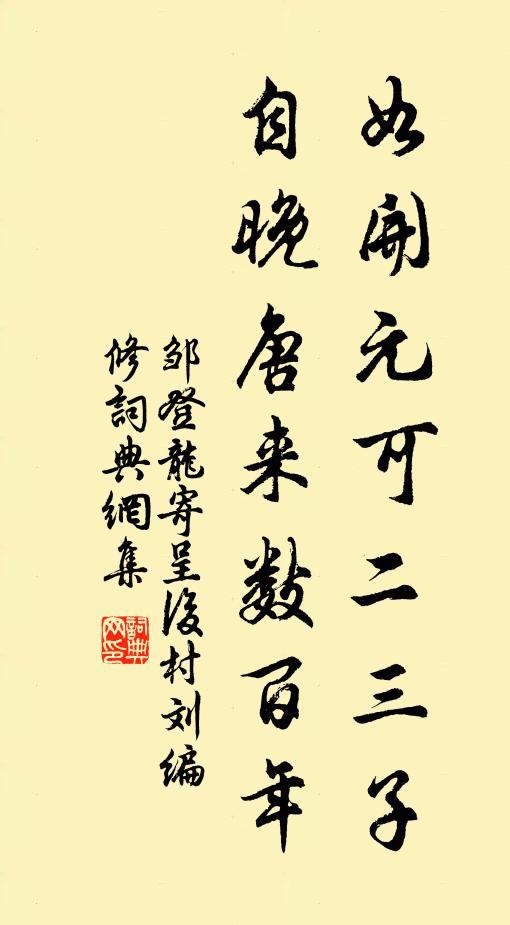 如開元可二三子
自晚唐来数百年
邹登龍寄呈後村刘编
修詞典網集
詞典
网印